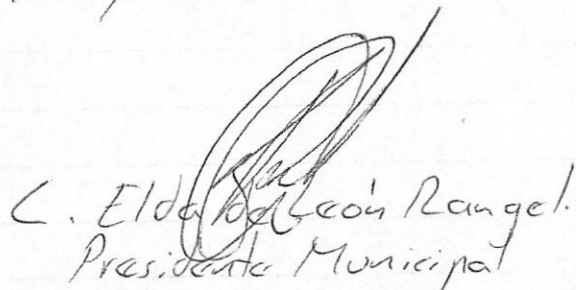 C. Elda de León Rangel.
Presidenta Municipal